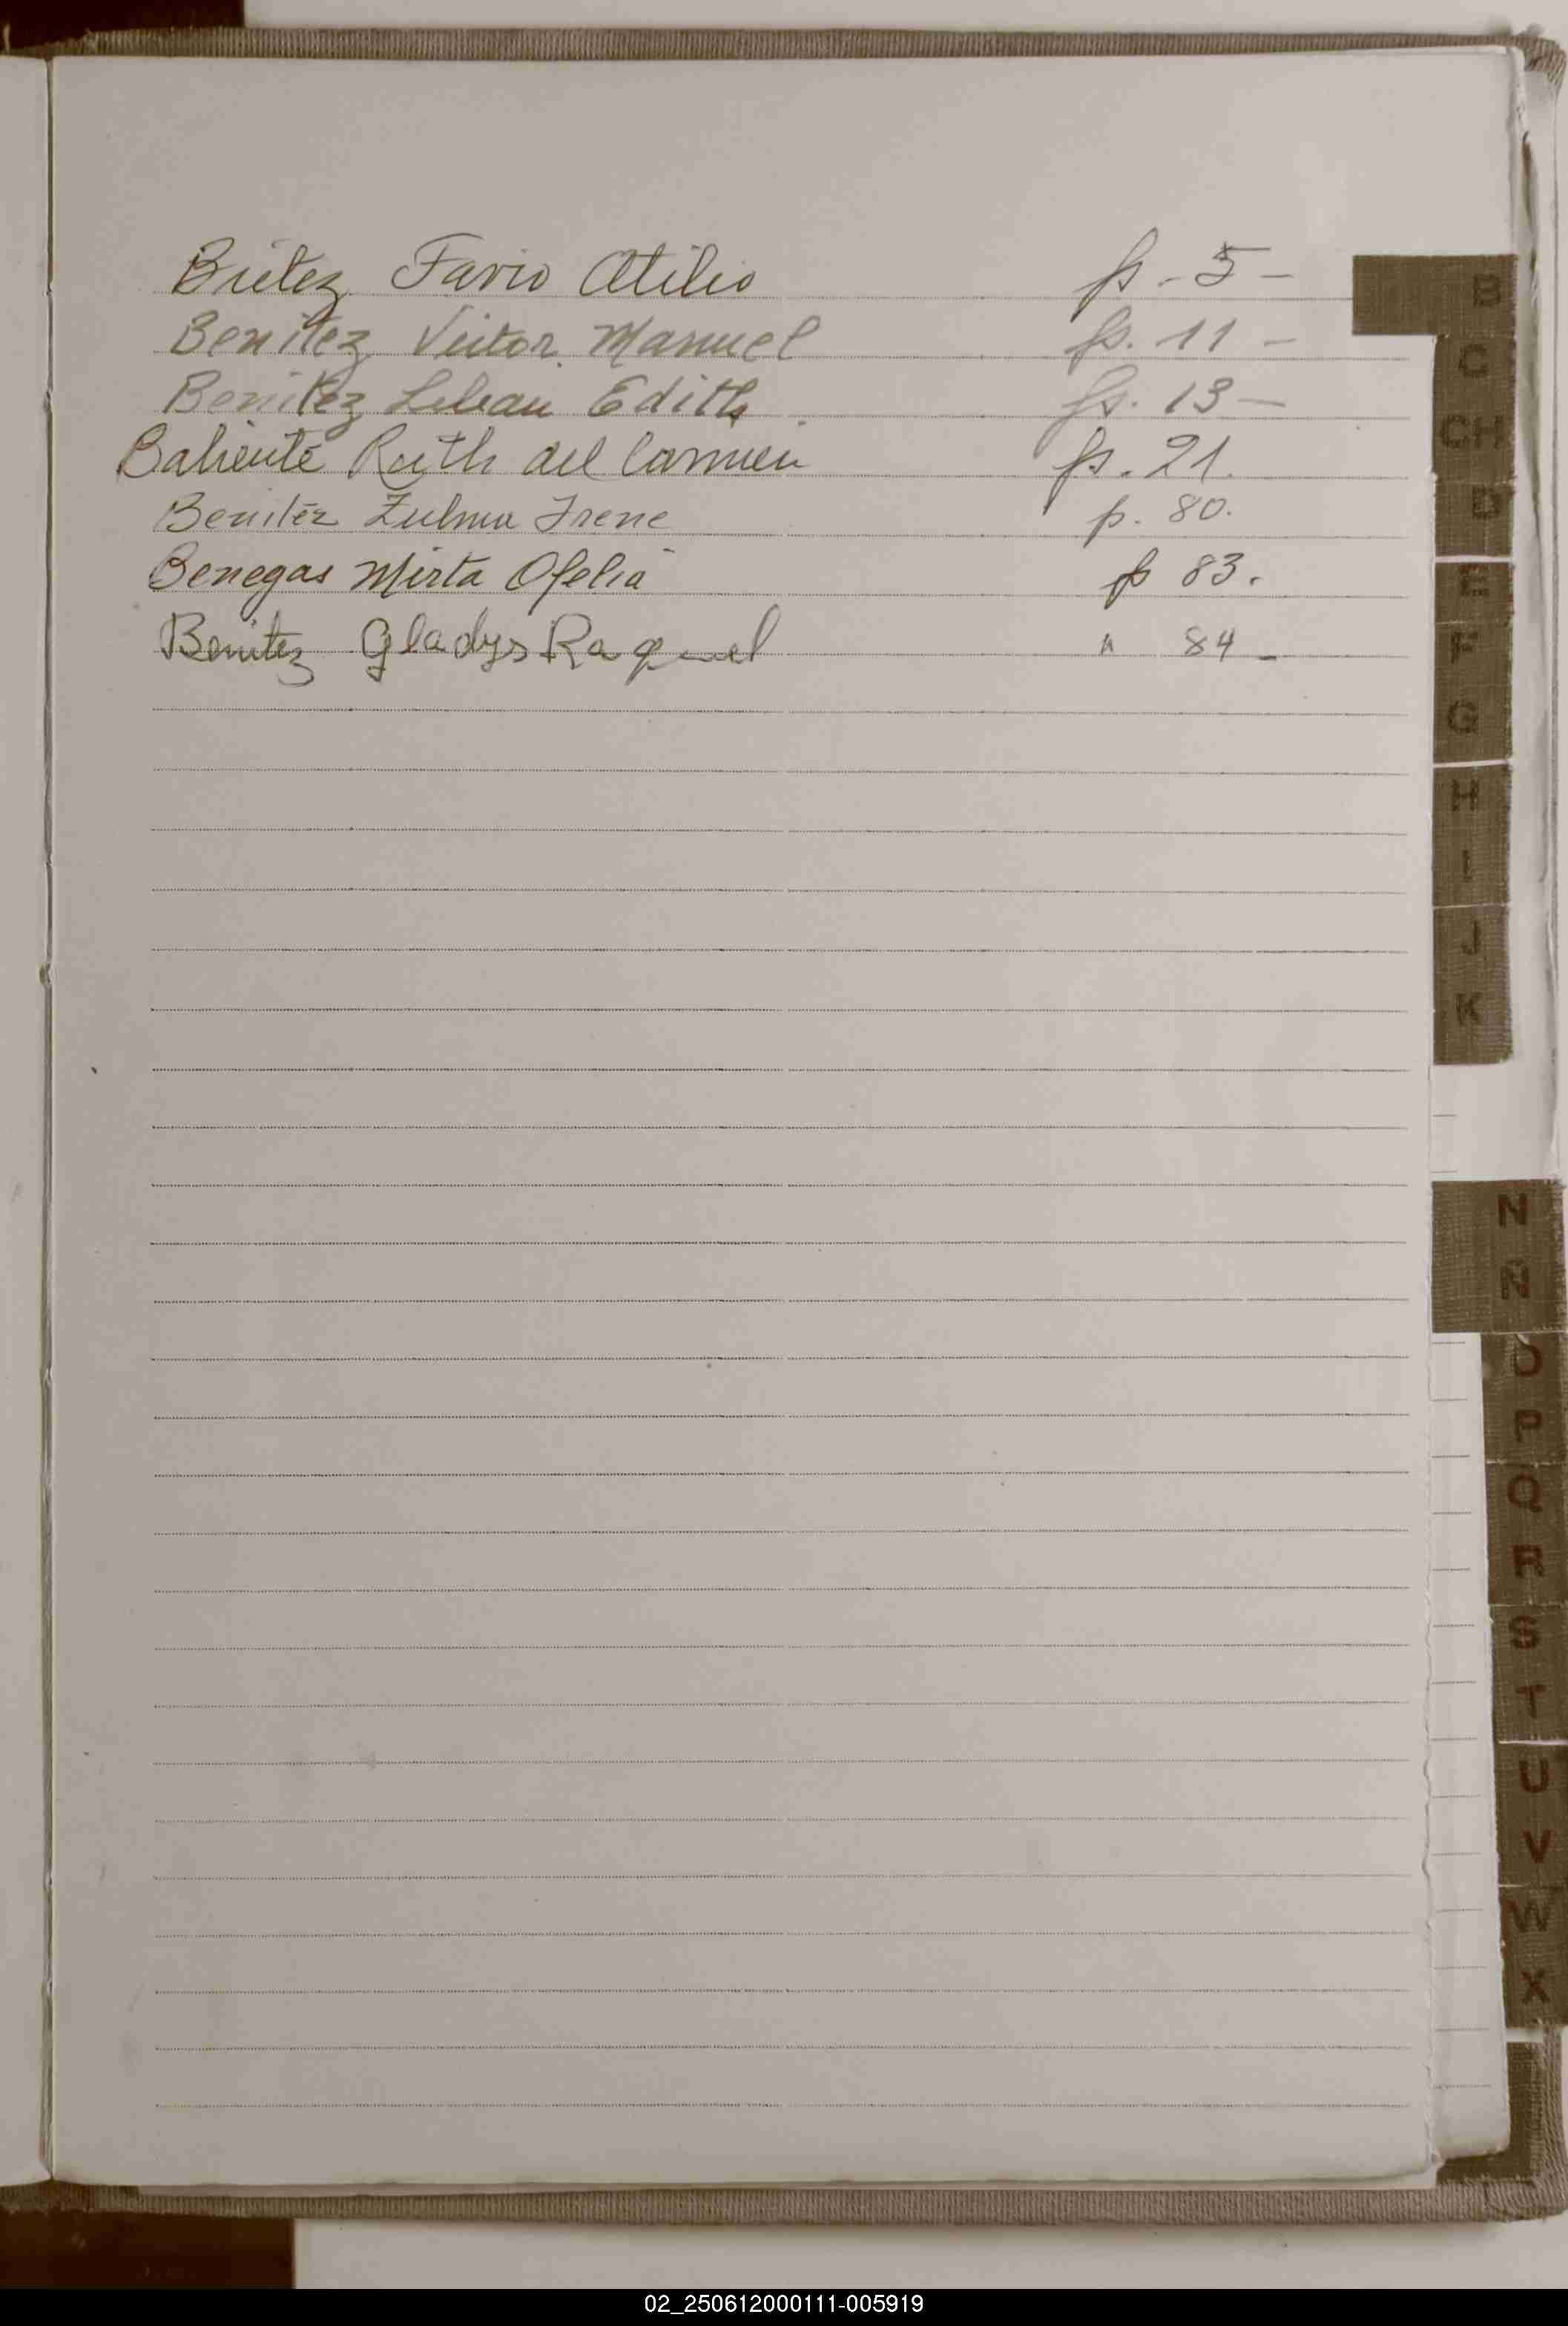 Britez Favio Atilio fs. 5 -
Benitez Victor Manuel fs. 11 -
Benitez Lilian Edith fs. 13 -
Baliente Ruth del Carmen fs. 21.
Benitéz Zulma Irene p. 80.
Benegas Mirta Ofelia p 83.
Benitez Gladys Raquel " 84 -
B
C
CH
D
E
F
G
H
I
J
K
N
Ñ
O
P
Q
R
S
T
U
V
W
X
02_250612000111-005919